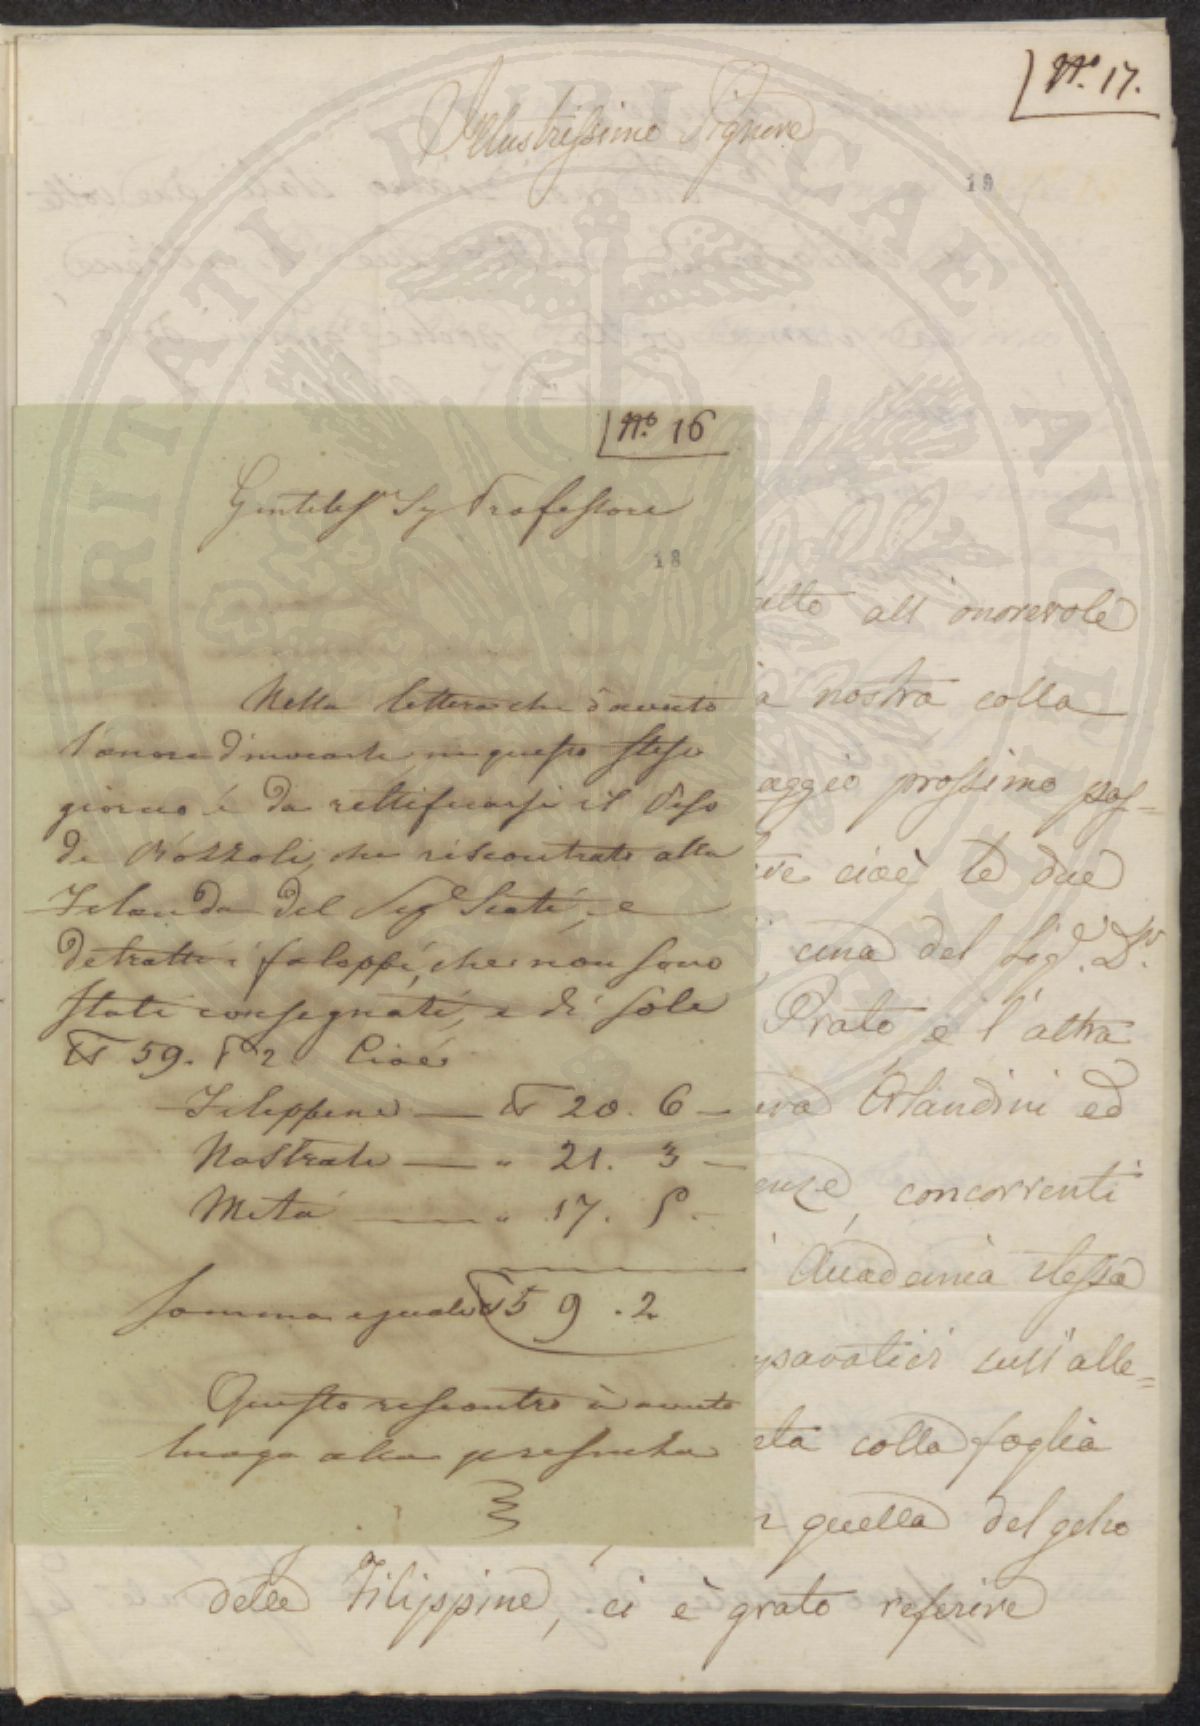 N.º 17.
Illustrissimo Signore
19
N.º 16
Gentiless.º Sig Professore
18
Nella lettera che ò avuto
l'onore d'inviarle in questo stesso
giorno é da rettificarsi il Peso
di Bozzoli, che riscontrato alla
Filanda del Sig.e Scoti, e
detratti i faloppi, che non sono
stati consegnati, e di sole
59. 2 Cioé
Filippine — 20. 6 —
Nostrale — " 21. 3 —
Metá — " 17. 5 -
Somma eguale 59.2
Questo riscontro à avuto
luogo alla presenza
all' onorevole
à nostra colla
aggio prossimo pas=
cioè le due
una del Sig. D.r
Prato, e l'altra
Orlandini ed
enze, concorrenti
Accademia stessa
sull'alle=
colla foglia
quella del gelso
delle Filippine, ci è grato referire
VERITATI PUBLICAE AVORUM